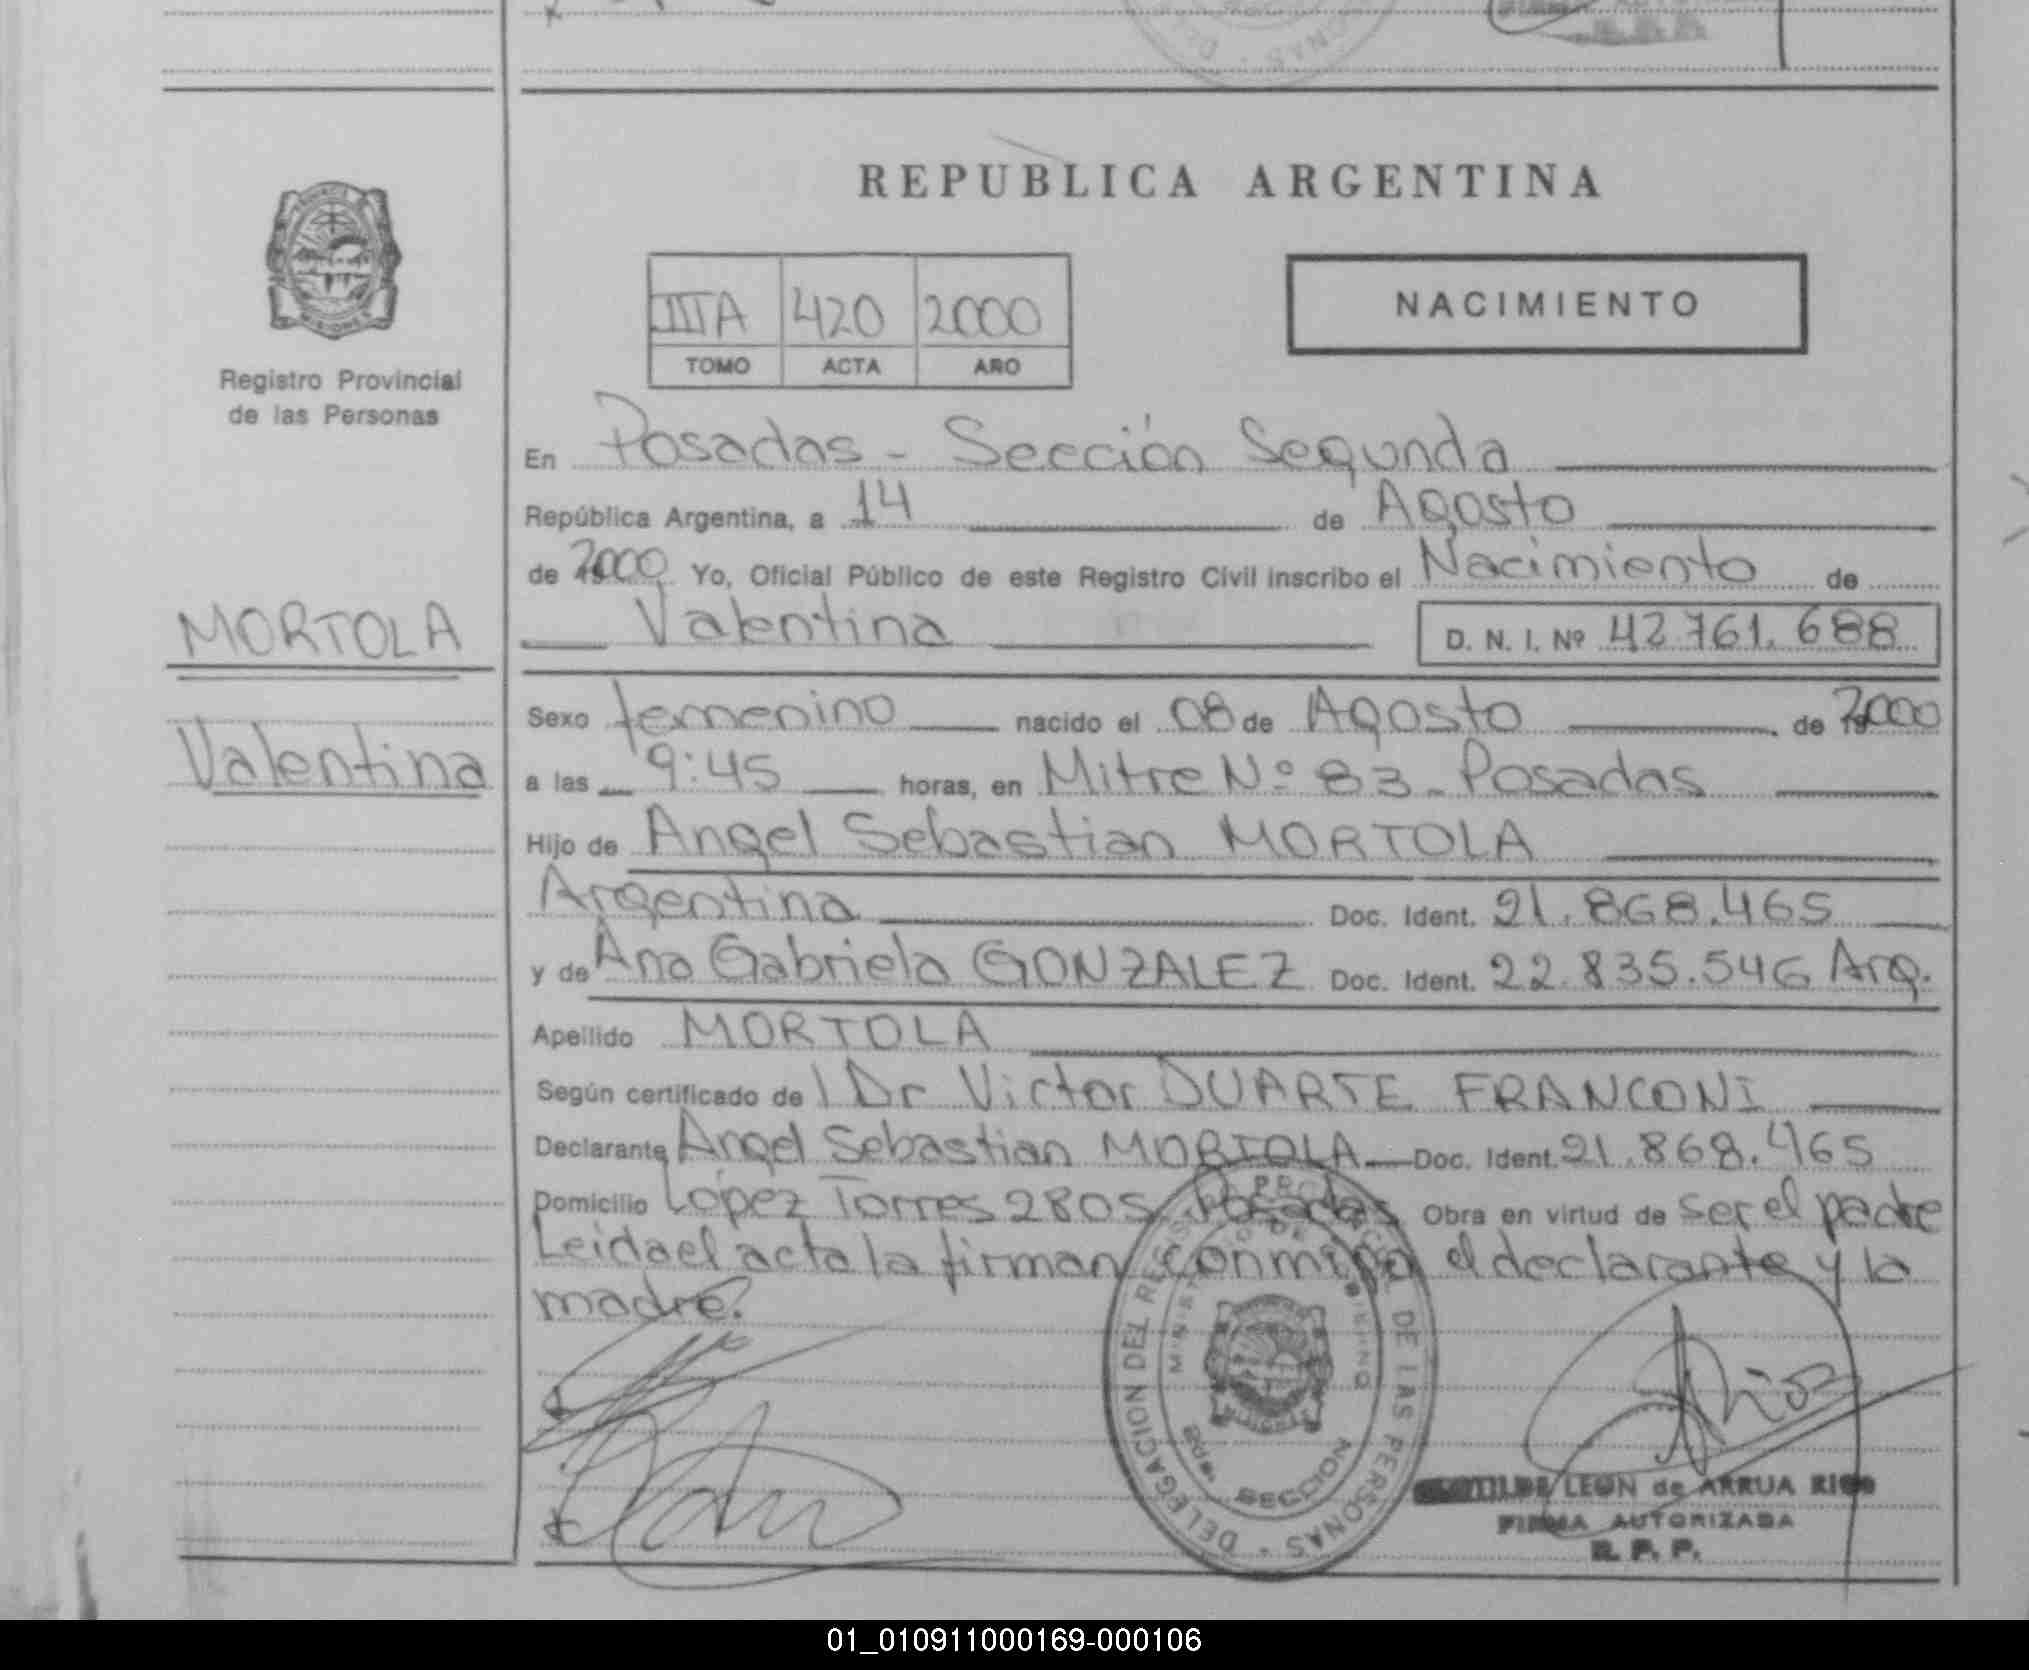 REPUBLICA ARGENTINA
MISIONES
Registro Provincial
de las Personas
IIIA 420 2000
TOMO ACTA AÑO
NACIMIENTO
En Posadas - Sección Segunda
República Argentina, a 14 de Agosto
de 2000 Yo, Oficial Público de este Registro Civil inscribo el Nacimiento de
MORTOLA
Valentina D. N. I. Nº 42.761.688
Sexo femenino nacido el 08 de Agosto de 2000
Valentina
a las 9:45 horas, en Mitre Nº 83 - Posadas
Hijo de Angel Sebastian MORTOLA
Argentina Doc. Ident. 21.868.465
y de Ana Gabriela GONZALEZ Doc. Ident. 22.835.546 Arg.
Apellido MORTOLA
Según certificado de Dr Victor DUARTE FRANCONI
Declarante Angel Sebastian MORTOLA Doc. Ident. 21.868.465
Domicilio López Torres 2805 Posadas Obra en virtud de ser el padre
Leida el acta la firman conmigo el declarante y la
madre.
DELEGACION DEL REGISTRO PROVINCIAL DE LAS PERSONAS
SECCION
LEON de ARRUA RIOS
FIRMA AUTORIZADA
R. P. P.
01_010911000169-000106